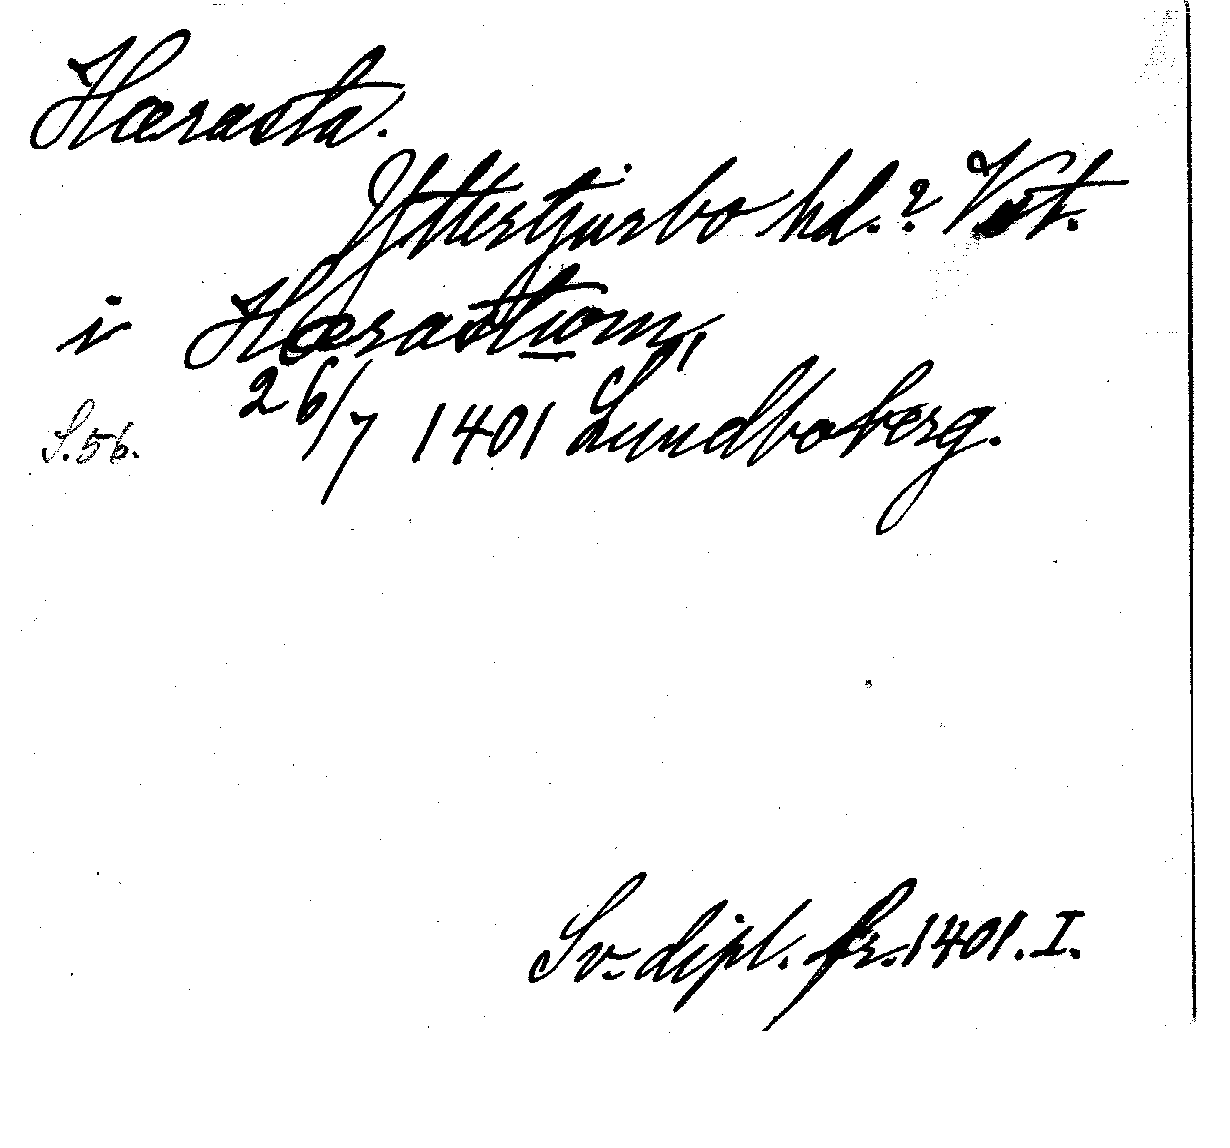 Hærasta.
Yttertjurbo hd.? Vst.
i Hærastiom,
26/7 1401 Lundboberg.
S. 56.
Sv. dipl. fr. 1401. I.